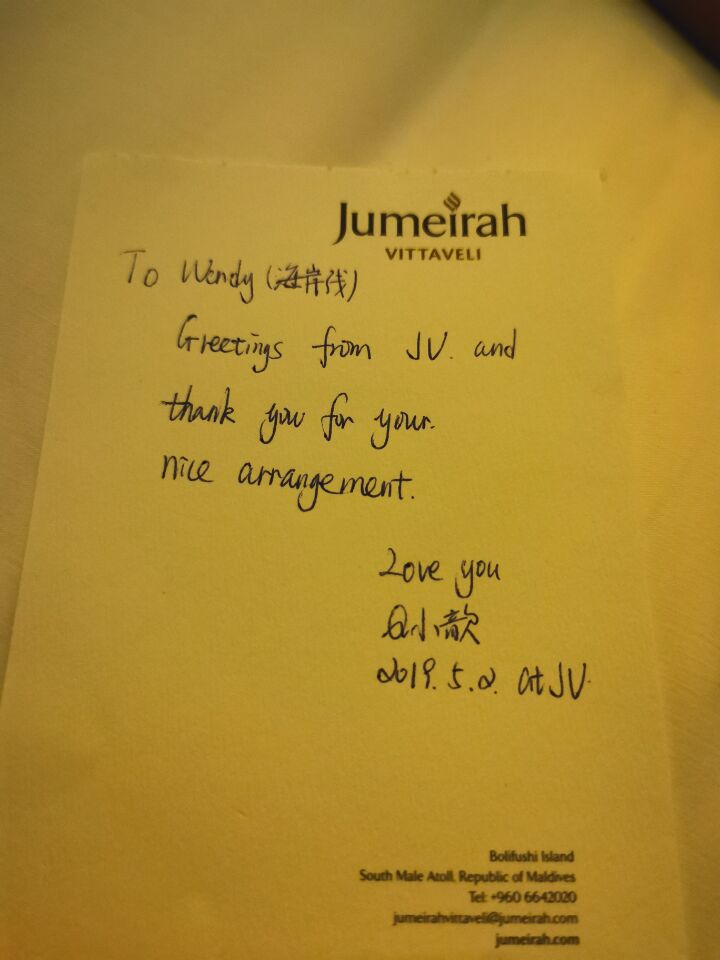 Jumeirah
VITTAVELI
To Wendy (海岸线)
Greetings from JV. and
thank you for your.
nice arrangement.
Love you
@小歆
2019.5.2. at JV.
Bolifushi Island
South Male Atoll, Republic of Maldives
Tel: +960 6642020
jumeirahvittaveli@jumeirah.com
jumeirah.com